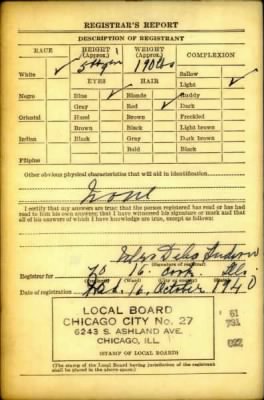 REGISTRAR'S REPORT
DESCRIPTION OF REGISTRANT
RACE HEIGHT (Approx.) WEIGHT (Approx.) COMPLEXION
White ✓ 170 lbs Sallow
EYES HAIR Light ✓
Negro Blue ✓ Blonde Ruddy
Gray Red ✓ Dark
Oriental Hazel Brown Freckled
Brown Black Light brown
Indian Black Gray Dark brown
Bald Black
Filipino
Other obvious physical characteristics that will aid in identification
None
I certify that my answers are true; that the person registered has read or has had
read to him his own answers; that I have witnessed his signature or mark and that
all of his answers of which I have knowledge are true, except as follows:
(Signature of registrar)
Registrar for 70 16 Cook Ill.
Date of registration 16, October 1940
LOCAL BOARD
CHICAGO CITY No. 27
6243 S. ASHLAND AVE.
CHICAGO, ILL.
(STAMP OF LOCAL BOARD)
(The stamp of the Local Board having jurisdiction of the registrant
shall be placed in the above space.)